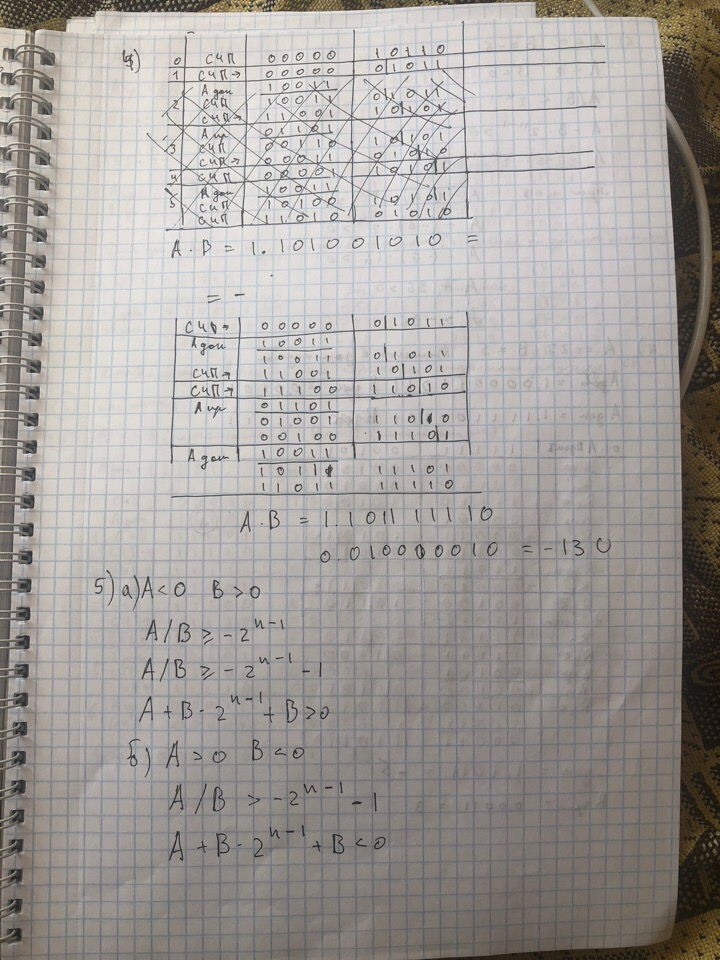 4)
0 СЧП 00000 10110
1 СЧП→ 00000 01011
Aдоп 10011
2 СЧП 10011 01011
СЧП→ 11001 10101
Aпр 01101
3 СЧП 00110 10101
СЧП→ 00011 01010
4 СЧП 00001 10101
Aдоп 10011
5 СЧП 10100 10101
СЧП 11010 01010
A·B = 1.101001010 =
= -
СЧП→ 00000 01011
Aдоп 10011
10011 01011
СЧП→ 11001 10101
СЧП→ 11100 11010
Aпр 01101
01001 11010
00100 11101
Aдоп 10011
10111 11101
11011 11110
A·B = 1.101111110
0.010000010 = -130
5) а) A<0 B>0
A/B ≥ -2^{n-1}
A/B ≥ -2^{n-1} -1
A+B·2^{n-1}+B>0
б) A>0 B<0
A/B > -2^{n-1} -1
A+B·2^{n-1}+B<0